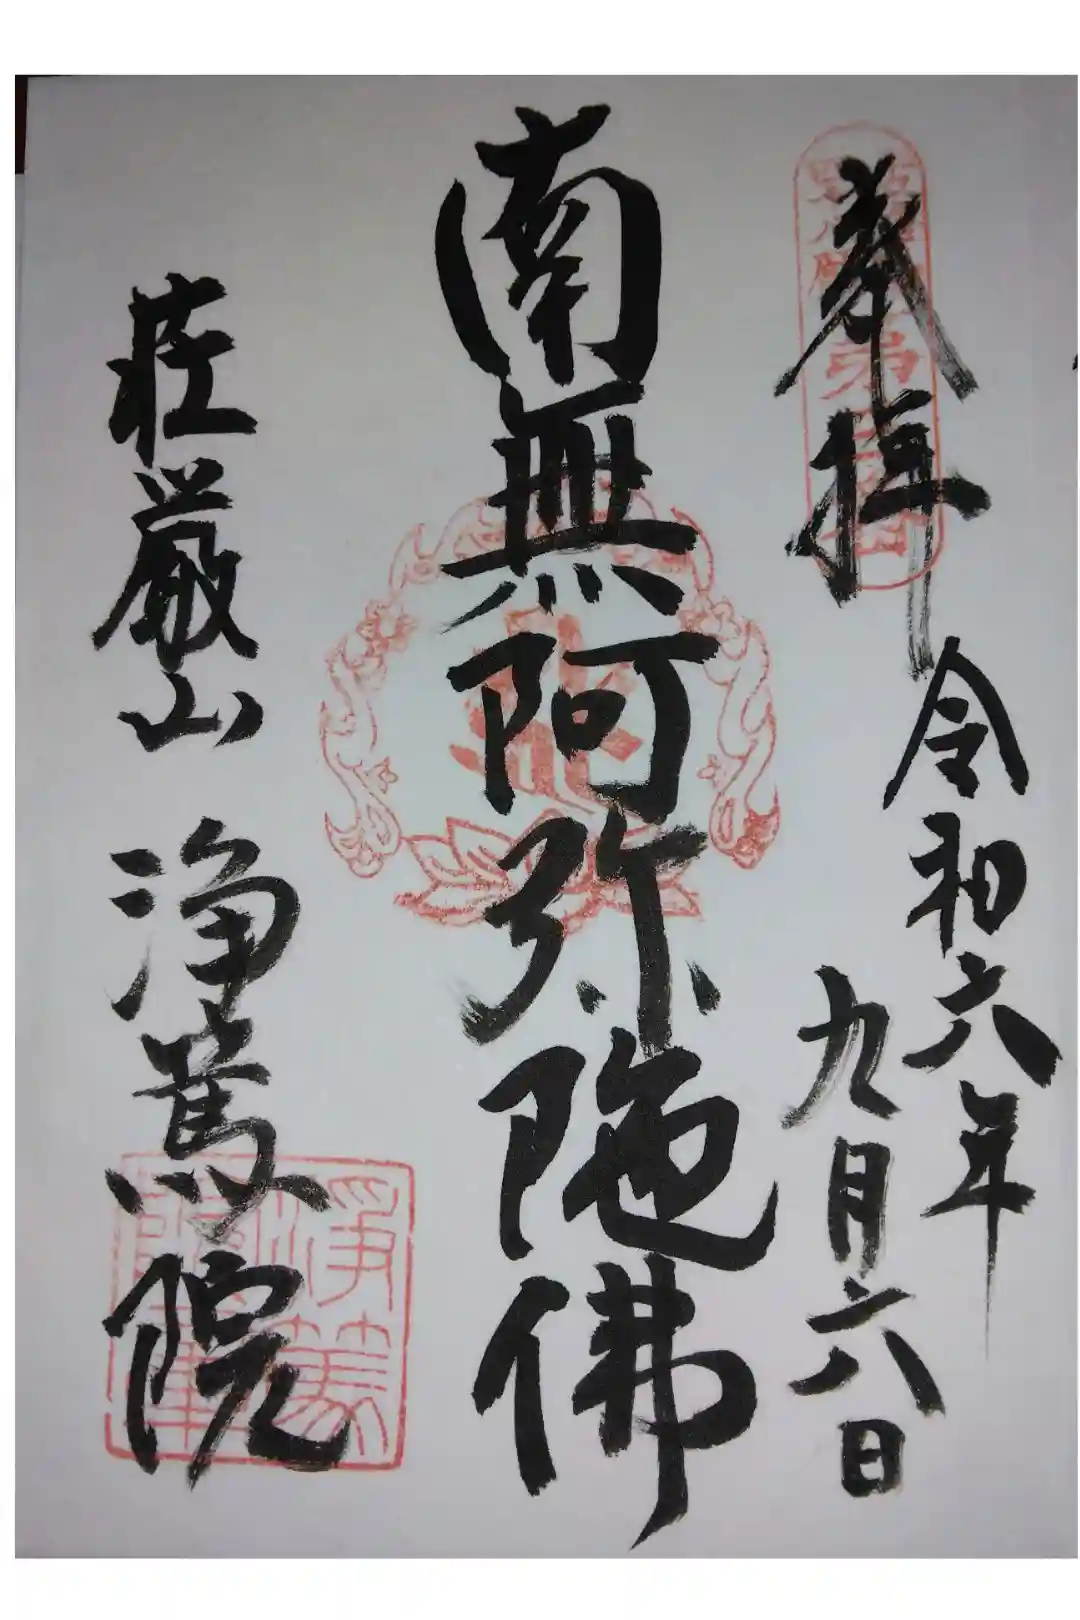 奉拝
令和六年
九月六日
南無阿弥陀佛
荘厳山 浄篤院